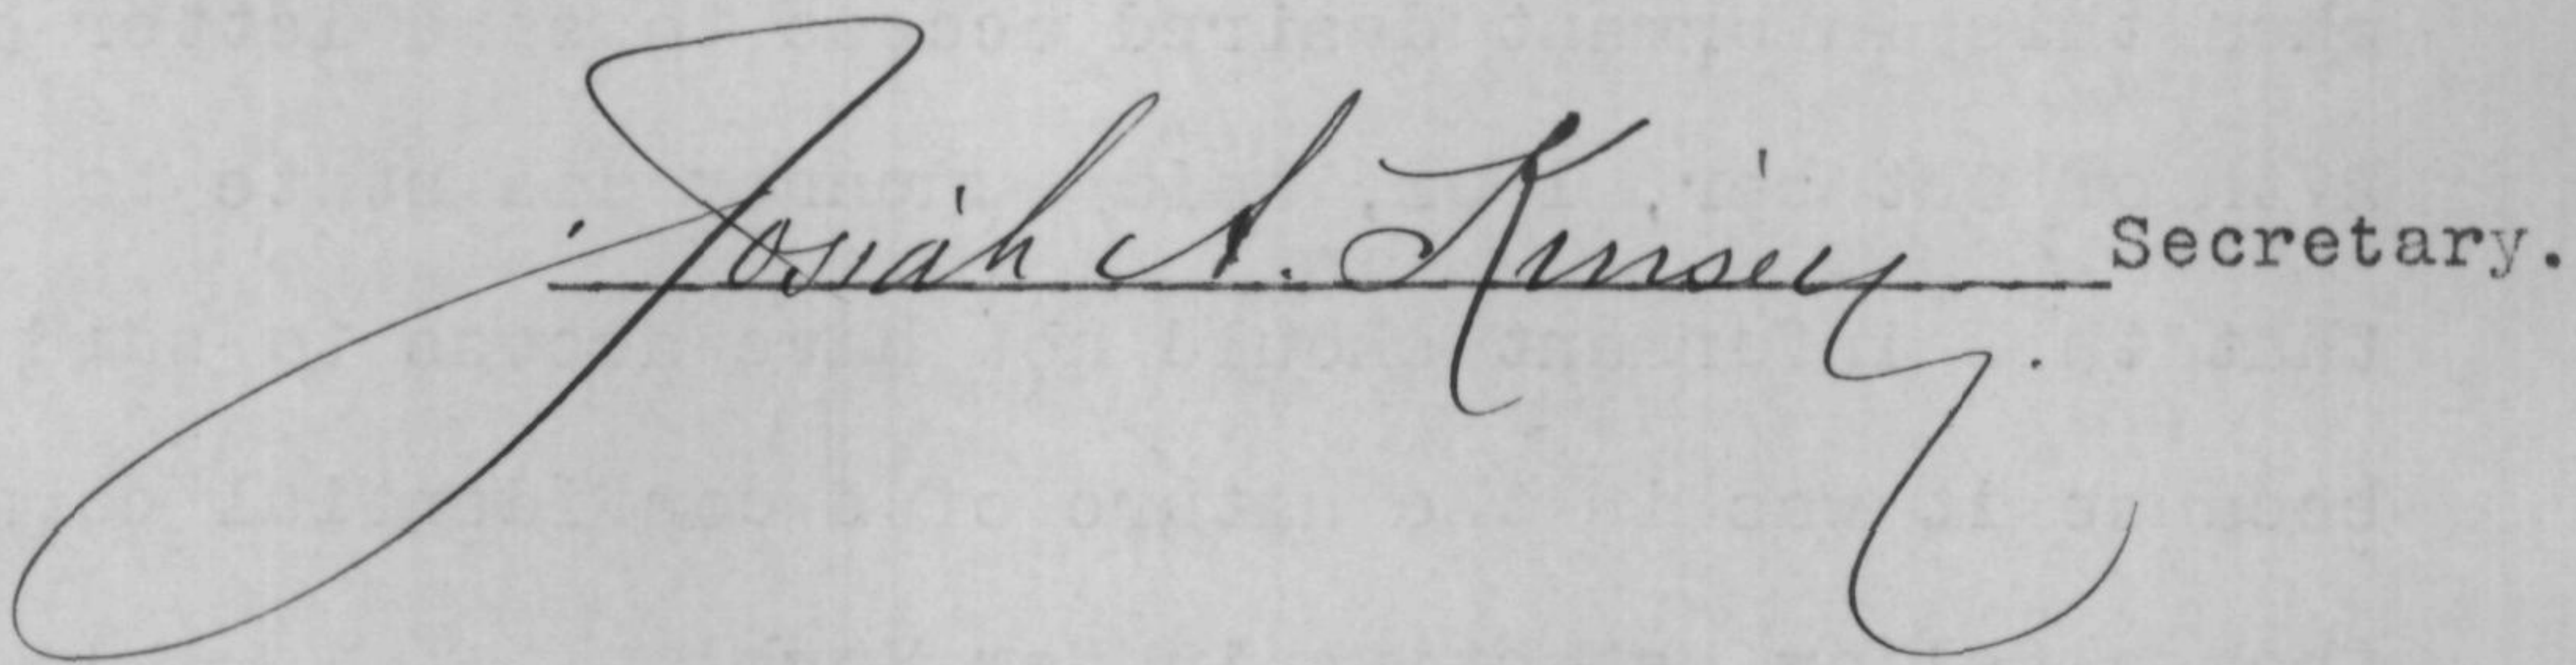 Josiah A. Kinsey Secretary.